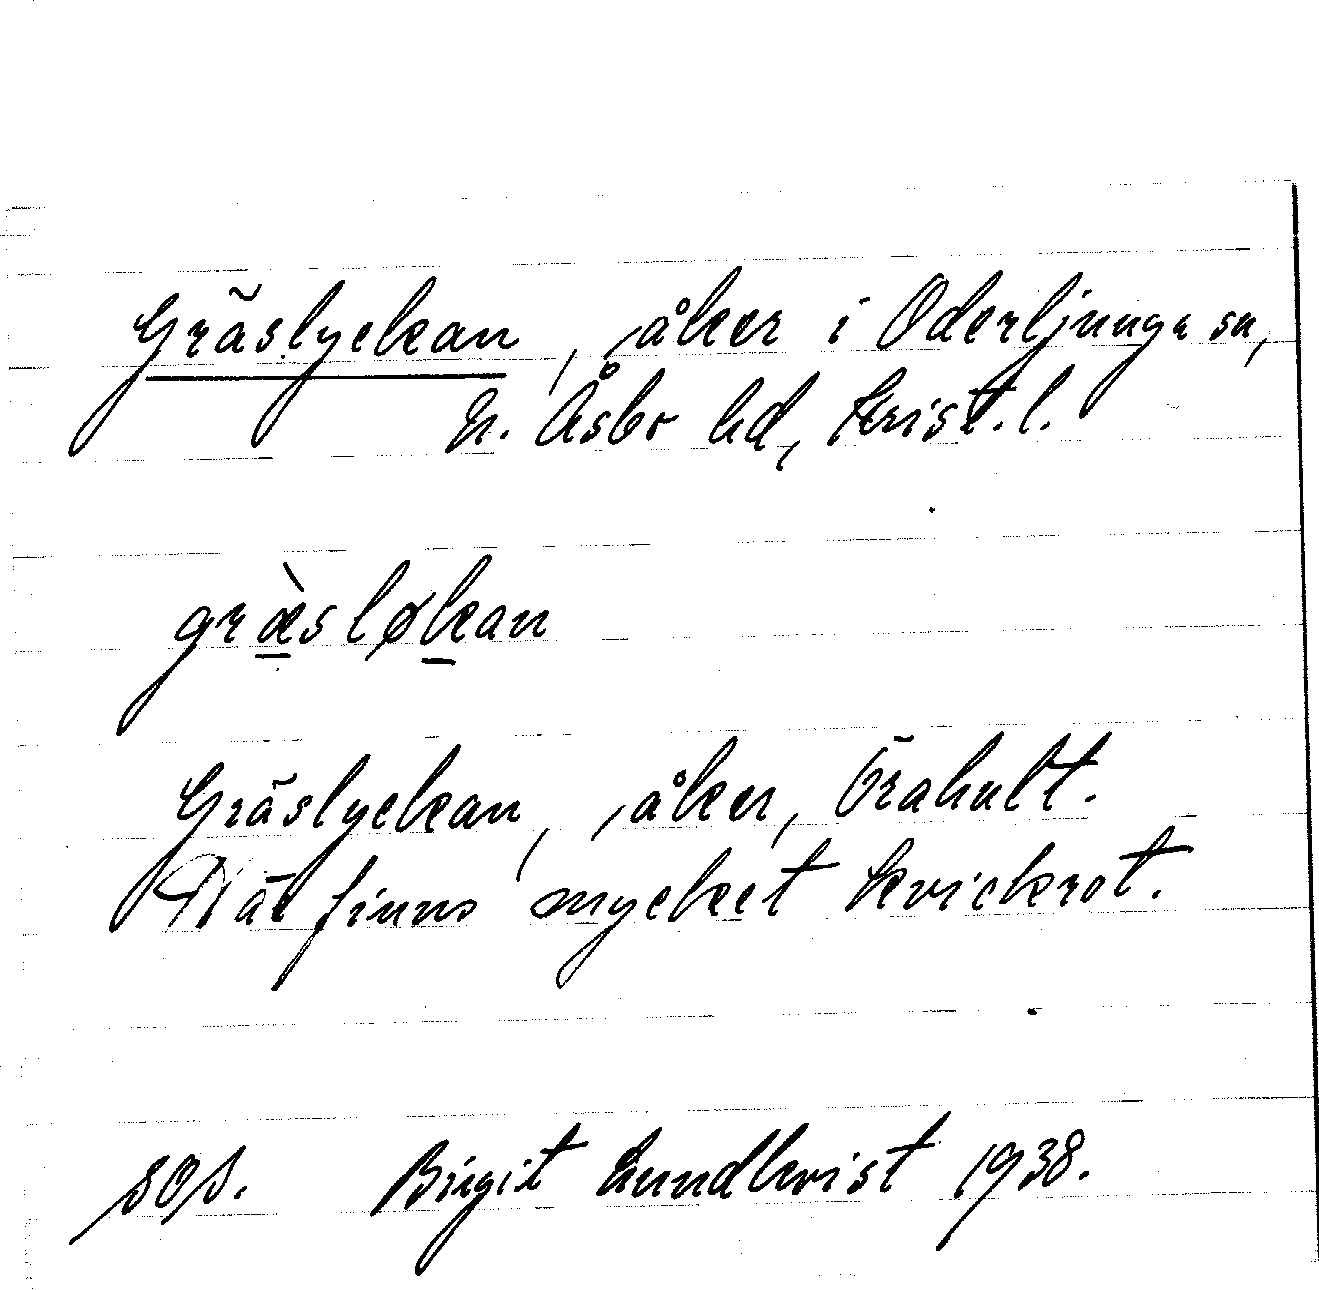 Gräslyckan, åker i Oderljunga sn,
N. Åsbo hd, Krist. l.
græ̀sløkan
Gräslyckan, åker, Örahult.
Där finns mycket kvickrot.
SOS. Birgit Lundkvist 1938.